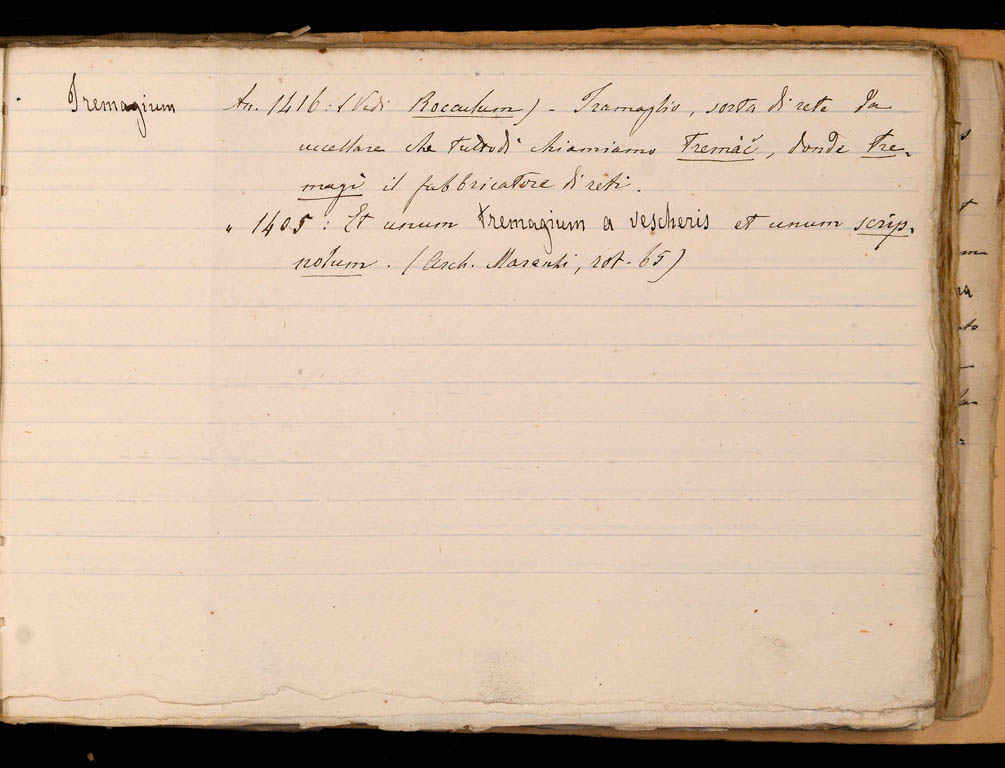 Tremagium An. 1416: (Vedi Roccalum) - Tramaglio, sorta di rete da
uccellare che tuttodì chiamiamo tremàč, donde tre-
magì il fabbricatore di reti.
" 1405: Et unum tremagium a vescheris et unum scrip-
nolum. (Arch. Marenti, rot. 65)